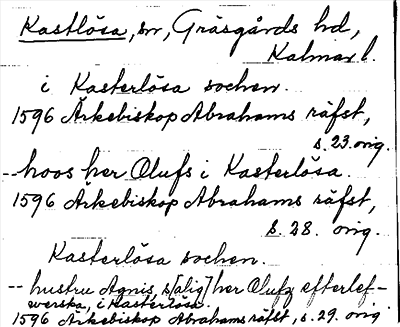 Kastlösa, sn, Gräsgårds hd,
Kalmar l.
i Kasterlösa sochen.
1596 Ärkebiskop Abrahams räfst,
s. 23. orig.
-- hoos her Olufs i Kasterlösa.
1596 Ärkebiskop Abrahams räfst,
s. 28. orig.
Kasterlösa sochen.
-- hustru Agnis, s[alig] her Olufz efterlef-
werska, i Kasterlösa.
1596 Ärkebiskop Abrahams räfst, s. 29. orig